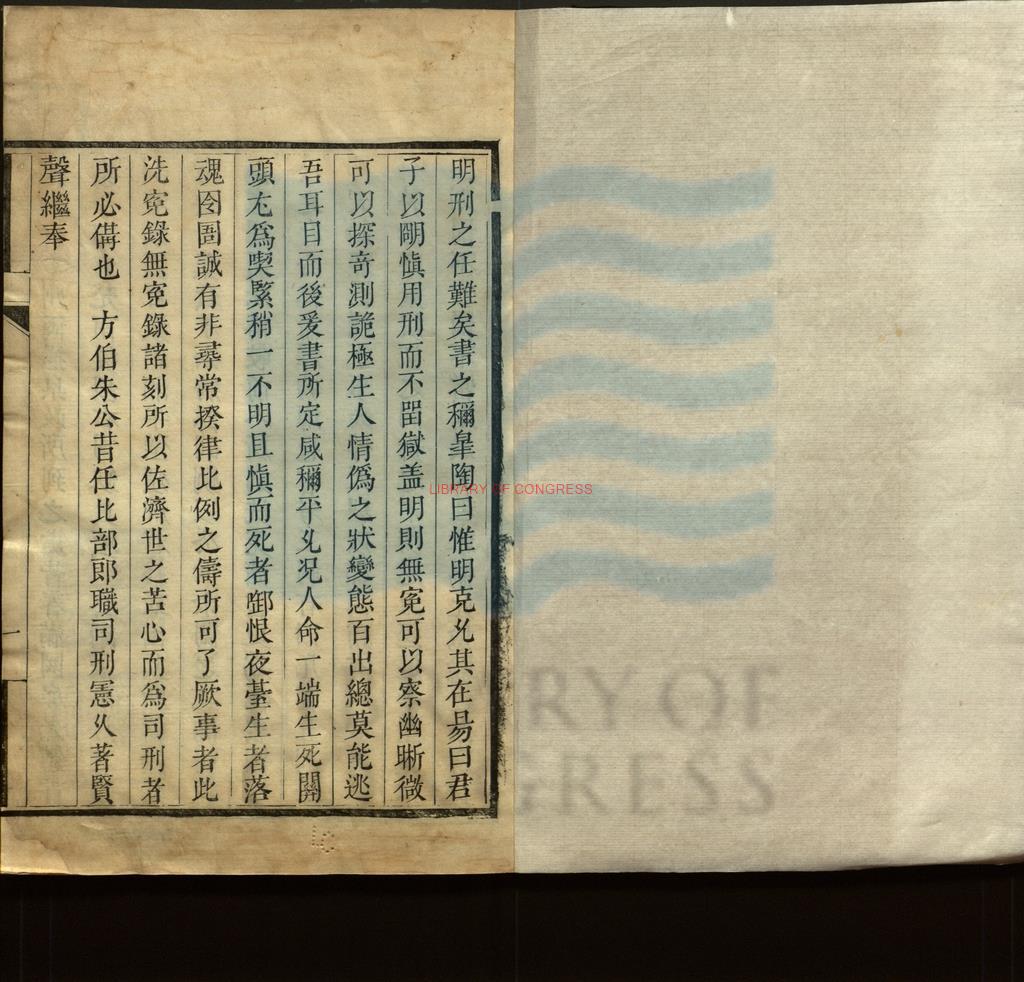 明刑之任難矣書之稱臯陶曰惟明克允其在昜曰君
子以朙慎用刑而不畱獄盖明則無寃可以察幽晰微
可以探竒測詭極生人情偽之狀變態百出總莫能逃
吾耳目而後爰書所定咸稱平允况人命一端生死關
頭尤為喫緊稍一不明且慎而死者啣恨夜臺生者落
魂囹圄誠有非尋常揆律比例之儔所可了厥事者此
洗寃錄無寃錄諸刻所以佐濟世之苦心而為司刑者
所必備也 方伯朱公昔任比部郎職司刑憲久著賢
聲繼奉
一
LIBRARY OF CONGRESS
RY OF
GRESS